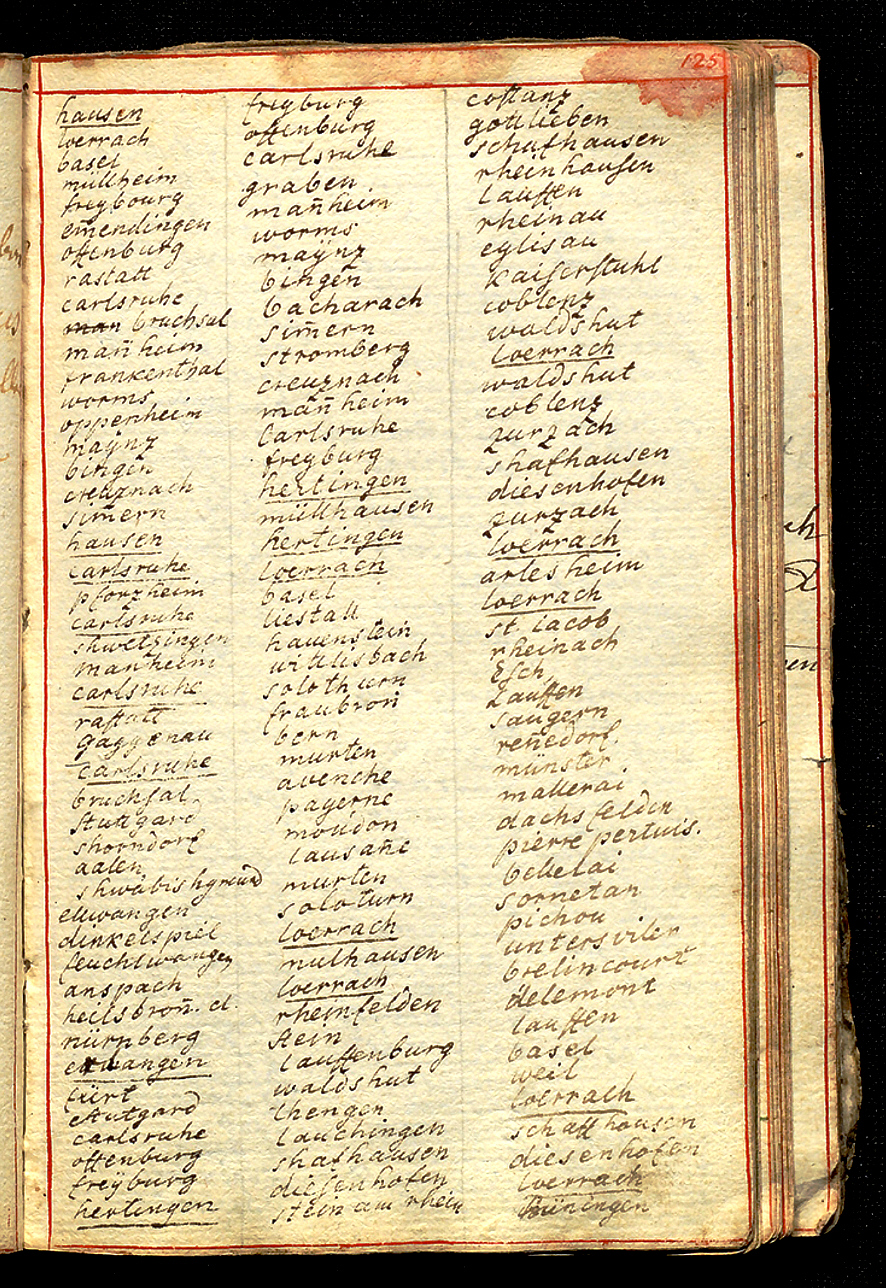 125
hausen
loerrach
basel
müllheim
freybourg
em̄endingen
offenburg
rastatt
carlsruhe
man bruchsal
man̄heim
frankenthal
worms
oppenheim
maÿnz
bingen
creuznach
sim̄ern
hausen
carlsruhe
pforzheim
carlsruhe
shwetzingen
man̄heim
carlsruhe
rastatt
gaggenau
carlsruhe
bruchsal
stuttgard
shorndorf
aalen
shwäbishgmünd
elwangen
dinkelspiel
feuchtwangen
anspach
heilsbron̄. cl.
nürnberg
elwangen
fürt
stutgard
carlsruhe
offenburg
freÿburg
hertingen
freyburg
offenburg
carlsruhe
graben
man̄heim
worms
maÿnz
bingen
bacharach
sim̄ern
stromberg
creuznach
man̄heim
Carlsruhe
freyburg
hertingen
müllhausen
hertingen
loerrach
basel
liestall
hauenstein
witlisbach
solothurn
fraubron̄
bern
murten
avenche
payerne
moudon
lausan̄e
murten
soloturn
loerrach
mulhausen
loerrach
rheinfelden
stein
lauffenburg
waldshut
thengen
lauchingen
shafhausen
diesenhofen
stein am rhein
costanz
gottlieben
schafhausen
rheinhausen
lauffen
rheinau
eglisau
kaiserstuhl
coblenz
waldshut
loerrach
waldshut
coblenz
zurzach
shafhausen
diesenhofen
zurzach
loerrach
arlesheim
loerrach
st. iacob
rheinach
Esch
Lauffen
saugern
ren̄edorf
münster
mallerai
dachsfelden
pierre pertuis.
bellelai
sornetan
pichou
untersviler
brelincourt
delemont
lauffen
basel
weil
loerrach
schaffhausen
diesenhofen
loerrach
hüningen